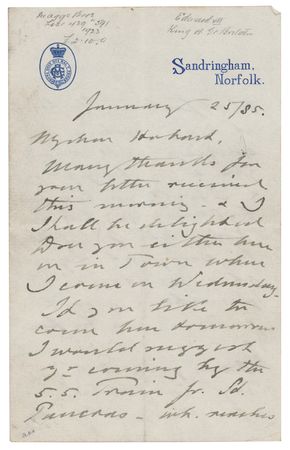 Maggs Bros
1923
£2.10.0
Edward VII
King of Gt Britain
Sandringham,
Norfolk.
January 25/85.
My dear
Many thanks for
your letter received
this morning - & I
shall be delighted
you either here
or in Town when
I come on Wednesday.
I'd you like to
come here tomorrow
I would suggest
yr coming by the
5.5. Train fr. St.
Pancras - wh. reaches